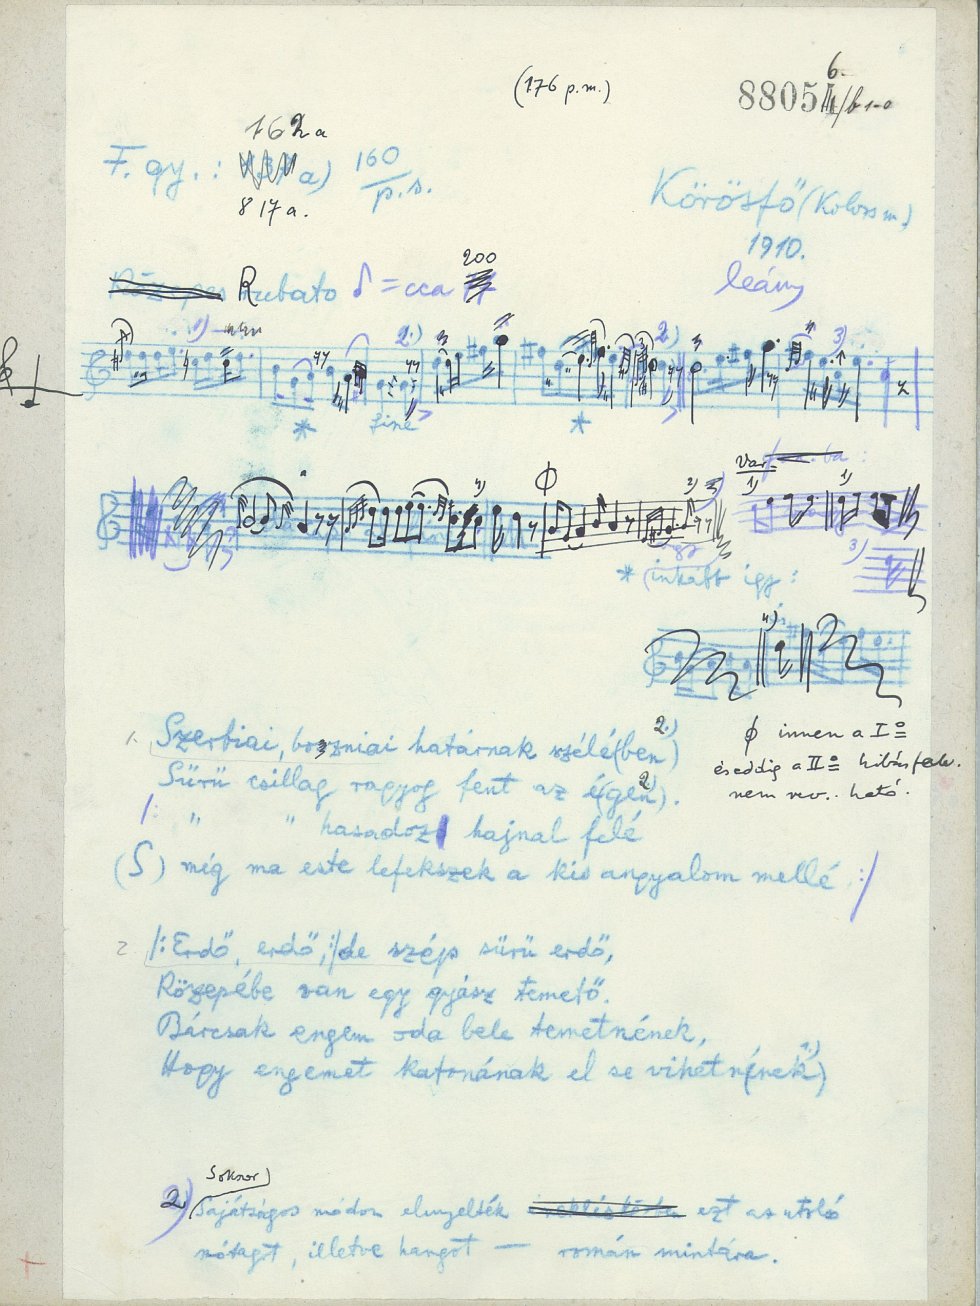 (176 p.m.)
6.
88054
162a
F. gy. : a) 160/p.s.
817a.
Kőrösfő (Kolozs m.)
1910.
leány
200
R rubato = cca
1) 2.) 2.) 3)
* fine *
Var.
1) 1)
4) ϕ 2)
3)
* (inkább így :
4)
1. Szerbiai, boszniai határnak szélé(ben 2.)
Sűrű csillag ragyog fent az é(gen 2).
" " hasadoz hajnal felé
(S) még ma este lefekszek a kis angyalom mellé :/
ϕ innen a I=
és eddig a II=
nem ható.
2 /: Erdő, erdő, :/ de szép sűrű erdő,
Közepébe van egy gyász temető.
Bárcsak engem oda bele temetnének,
Hogy engemet katonának el se vihetn(ének)
Sokszor
2) Sajátságos módon elnyelték ezt az utolsó
nótagot, illetve hangot — román mintára.